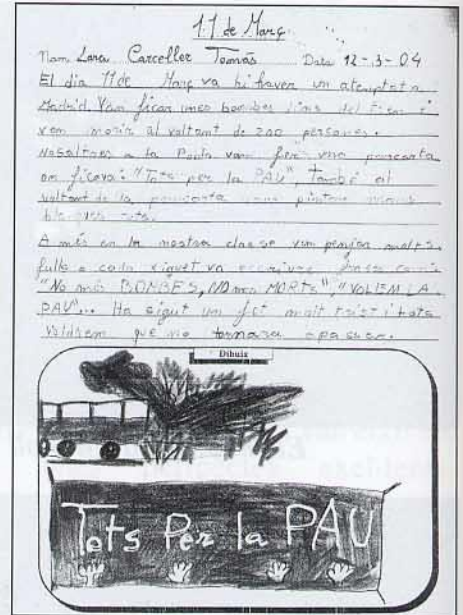 11 de Març
Nom Lara Carceller Tomás Data 12-3-04
El dia 11 de Març va hi haver un atemptat a
Madrid. Van ficar unes bombes dins del tren i
van morir al voltant de 200 persones.
Nosaltres a la Porta vam fer una pancarta
on ficava: "Tots per la PAU", També al
voltant de la pancarta mans
tots.
A més en la nostra classe vam penjar molts
fulls a cada xiquet va escriure frases com:
"No més BOMBES, NO més MORTS", "VOLEM LA
PAU"... Ha sigut un fet molt trist i tots
voldrem que no tornara a passar.
Dibuix
Tots Per la PAU